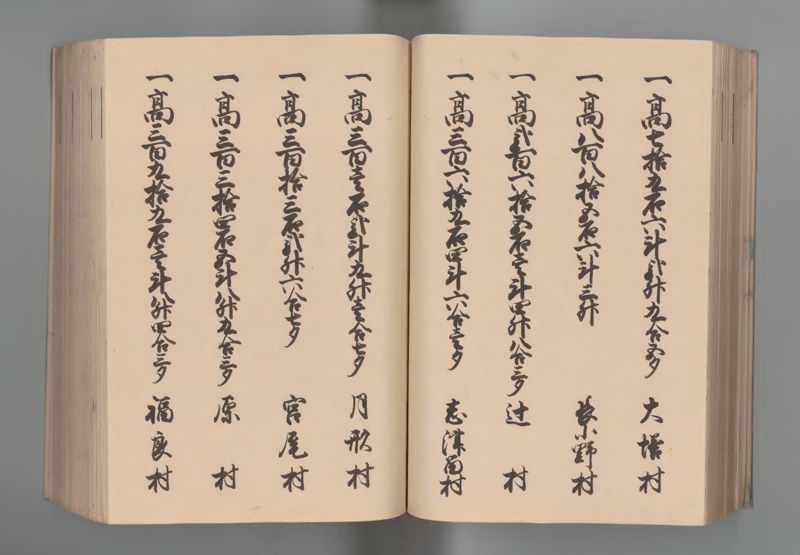 一高七拾九石六斗弐升九合五夕 大塚村
一高八百八拾五石六斗三升 長小野村
一高弐百六拾五石壱斗四升八合三夕 辻村
一高三百六拾九石四斗六合壱夕 志津留村
一高三百壱石弐斗九升壱合七夕 月形村
一高三百拾三石弐升六合七夕 宮尾村
一高三百二拾四石五斗八升九合三夕 原村
一高三百九拾九石壱斗八升四合三夕 福良村